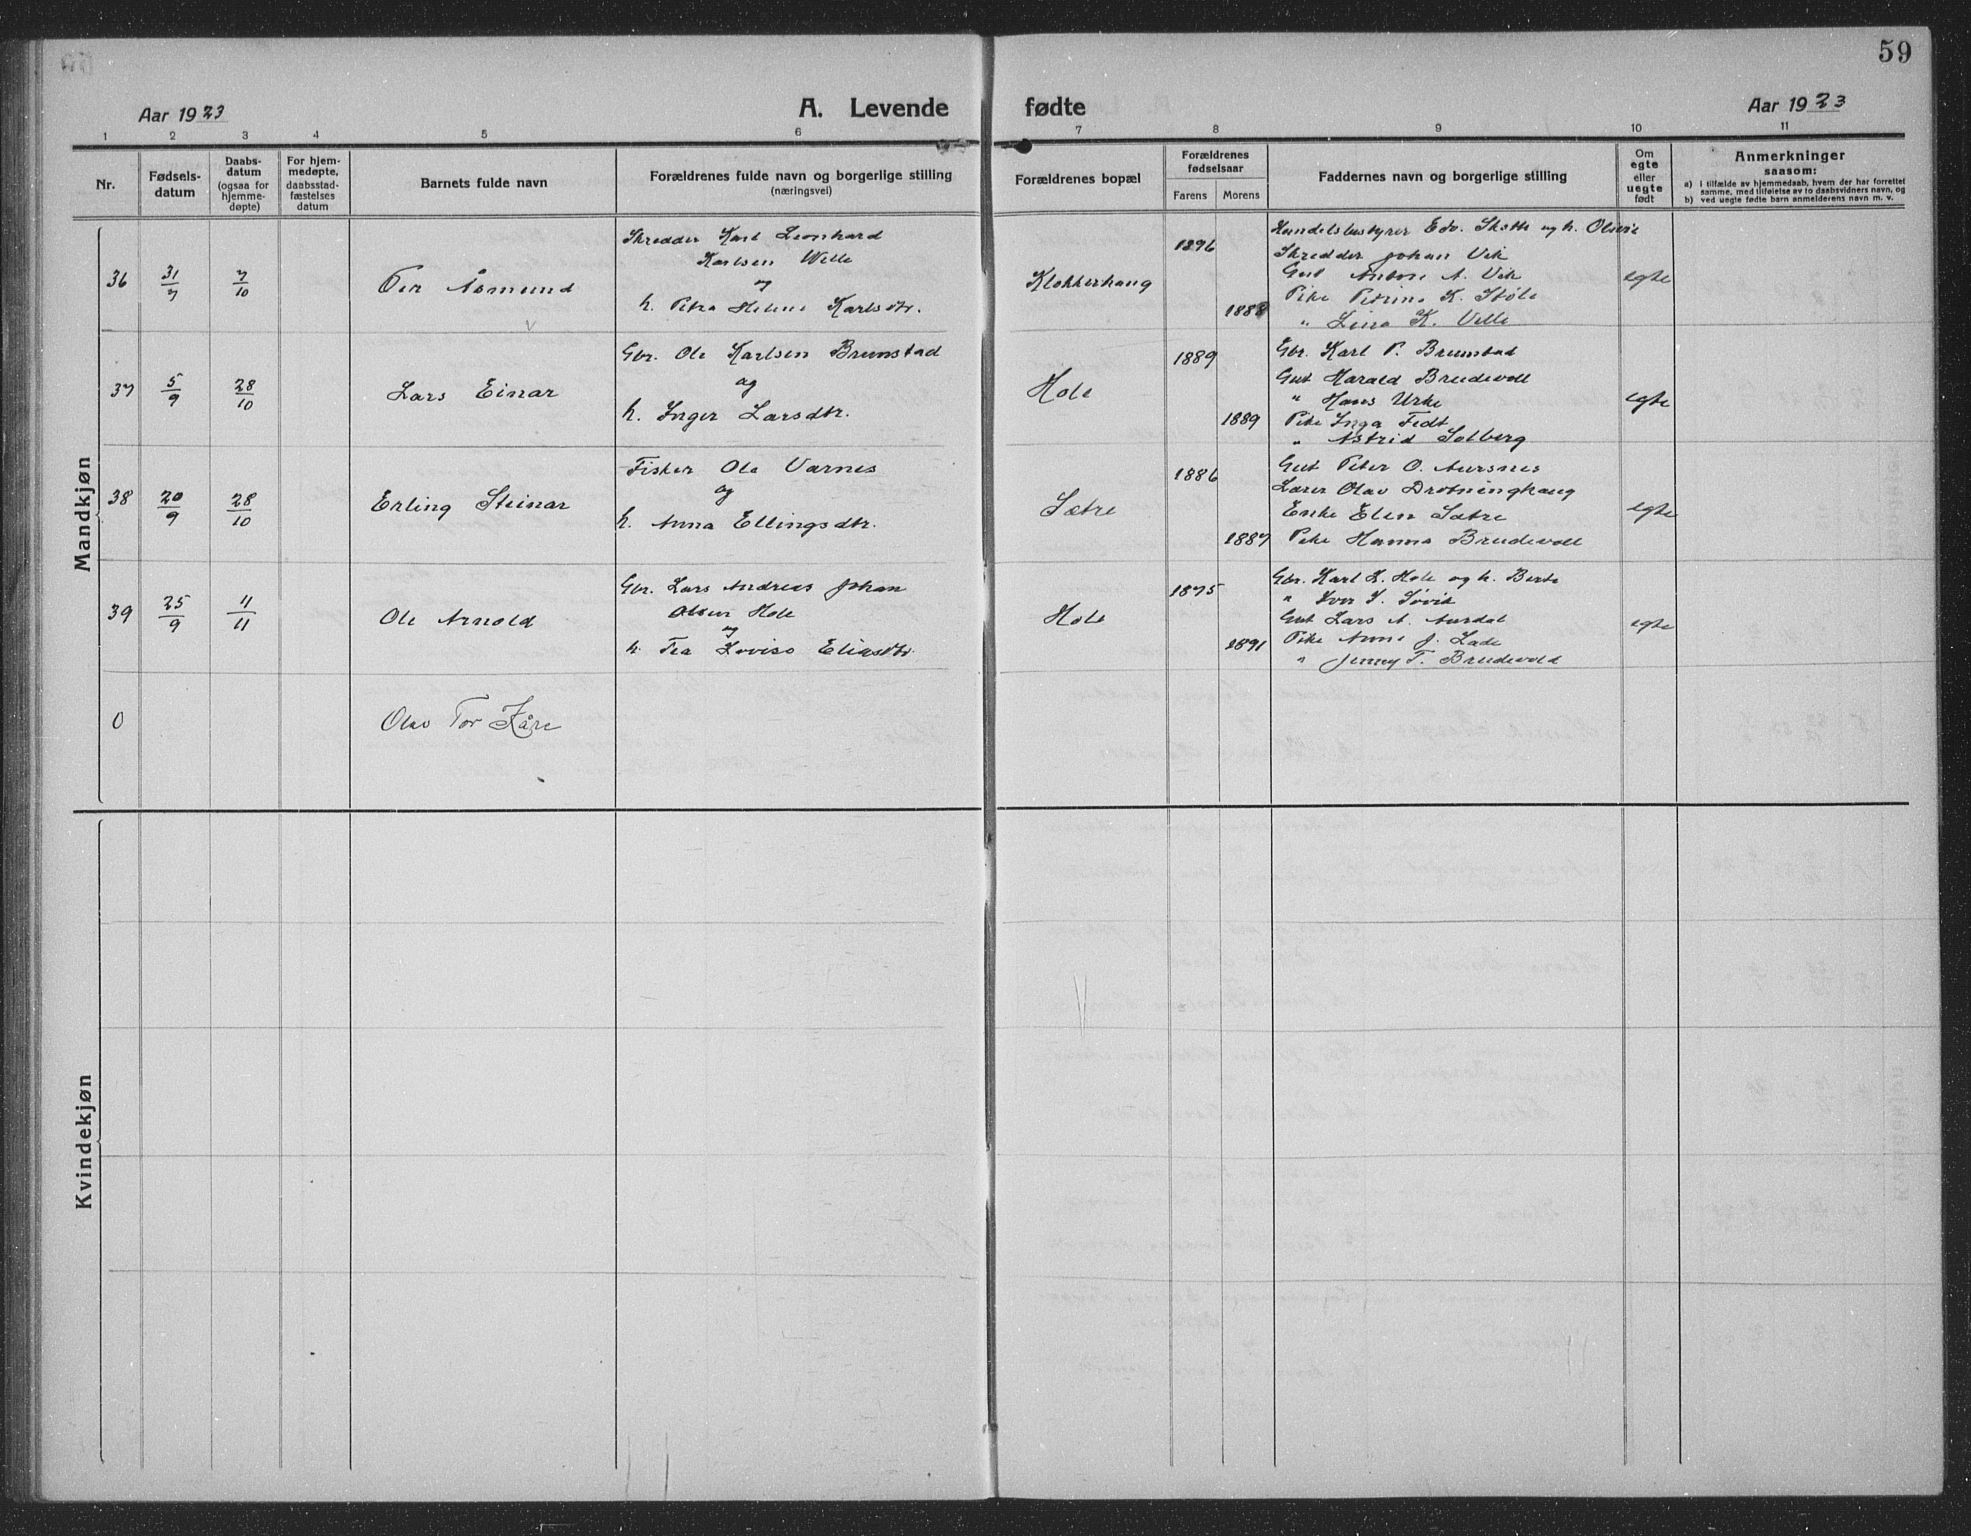 59
Aar 1923 A. Levende fødte Aar 1923
1 2 3 4 5 6 7 8 9 10 11
Nr.
Fødsels-
datum
Daabs-
datum
(ogsaa for
hjemme-
døpte)
For hjem-
medøpte,
daabsstad-
fæstelses
datum
Barnets fulde navn
Forældrenes fulde navn og borgerlige stilling
(næringsvei)
Forældrenes bopæl
Forældrenes
fødselsaar
Farens Morens
Faddernes navn og borgerlige stilling
Om
egte
eller
uegte
født
Anmerkninger
saasom:
a) i tilfælde av hjemmedaab, hvem der har forrettet
samme, med tilføielse av to daabsvidners navn, og
b) ved uegte fødte barn anmelderens navn m. v.
Mandkjøn
36 31/7 7/10 Per Åsmund
Skredder Karl Leonhard
Karlsen Welle
og
h. Petra Heline Karlsdtr.
Klokkerhaug
1896
1888
Handelsbestyrer Edv. Skotte og h. Olivie
Skredder Johan Vik
Gut Antone A. Vik
Pike Petrine K. Støle
" Lina K. Velle
egte
37 5/9 28/10 Lars Einar
Gbr. Ole Karlsen Brunstad
og
h. Inger Larsdtr.
Hole
1889
1889
Gbr. Karl P. Brunstad
Gut Harald Brudevoll
" Hans Urke
Pike Inga Fedt
" Astrid Solberg
egte
38 20/9 28/10 Erling Steinar
Fisker Ole Varnes
og
h. Anna Ellingsdtr.
Sætre
1886
1887
Gut Peter O. Aursnes
Lærer Olav Drotninghaug
Enke Elen Sætre
Pike Hanna Brudevoll
egte
39 25/9 11/11 Ole Arnold
Gbr. Lars Andreas Johan
Olsen Hole
og
h. Tea Lovise Eliasdtr.
Hole
1875
1891
Gbr. Karl L. Hole og h. Berte
" Iver I. Søvik
Gut Lars A. Aurdal
Pike Anne J. Lade
" Jenny T. Brudevold
egte
0 Olav Tor Kåre
Kvindekjøn